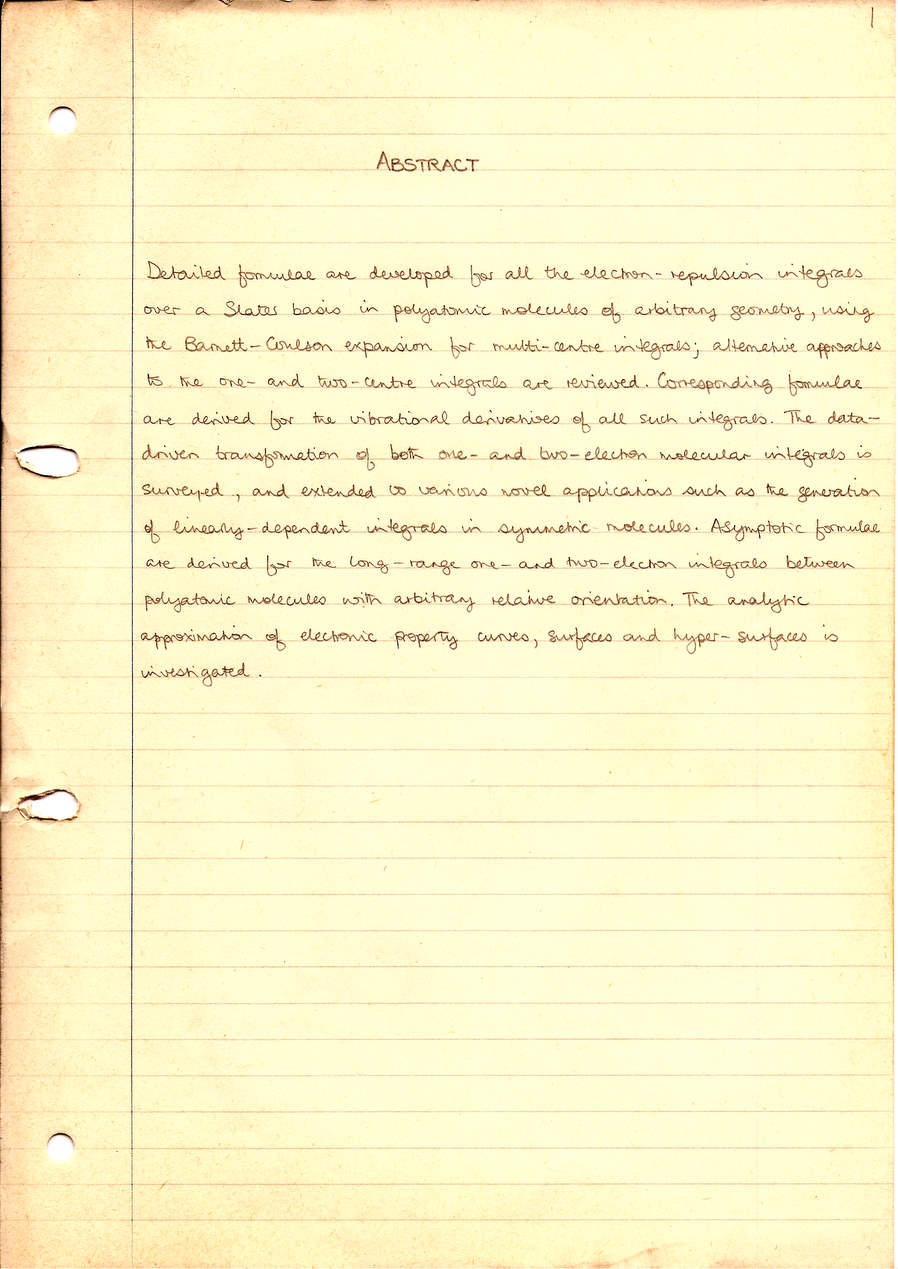 1
ABSTRACT
Detailed formulae are developed for all the electron-repulsion integrals
over a Slater basis in polyatomic molecules of arbitrary geometry, using
the Barnett-Coulson expansion for multi-centre integrals; alternative approaches
to the one- and two-centre integrals are reviewed. Corresponding formulae
are derived for the vibrational derivatives of all such integrals. The data-
driven transformation of both one- and two-electron molecular integrals is
surveyed, and extended to various novel applications such as the generation
of linearly-dependent integrals in symmetric molecules. Asymptotic formulae
are derived for the long-range one- and two-electron integrals between
polyatomic molecules with arbitrary relative orientation. The analytic
approximation of electronic property curves, surfaces and hyper-surfaces is
investigated.